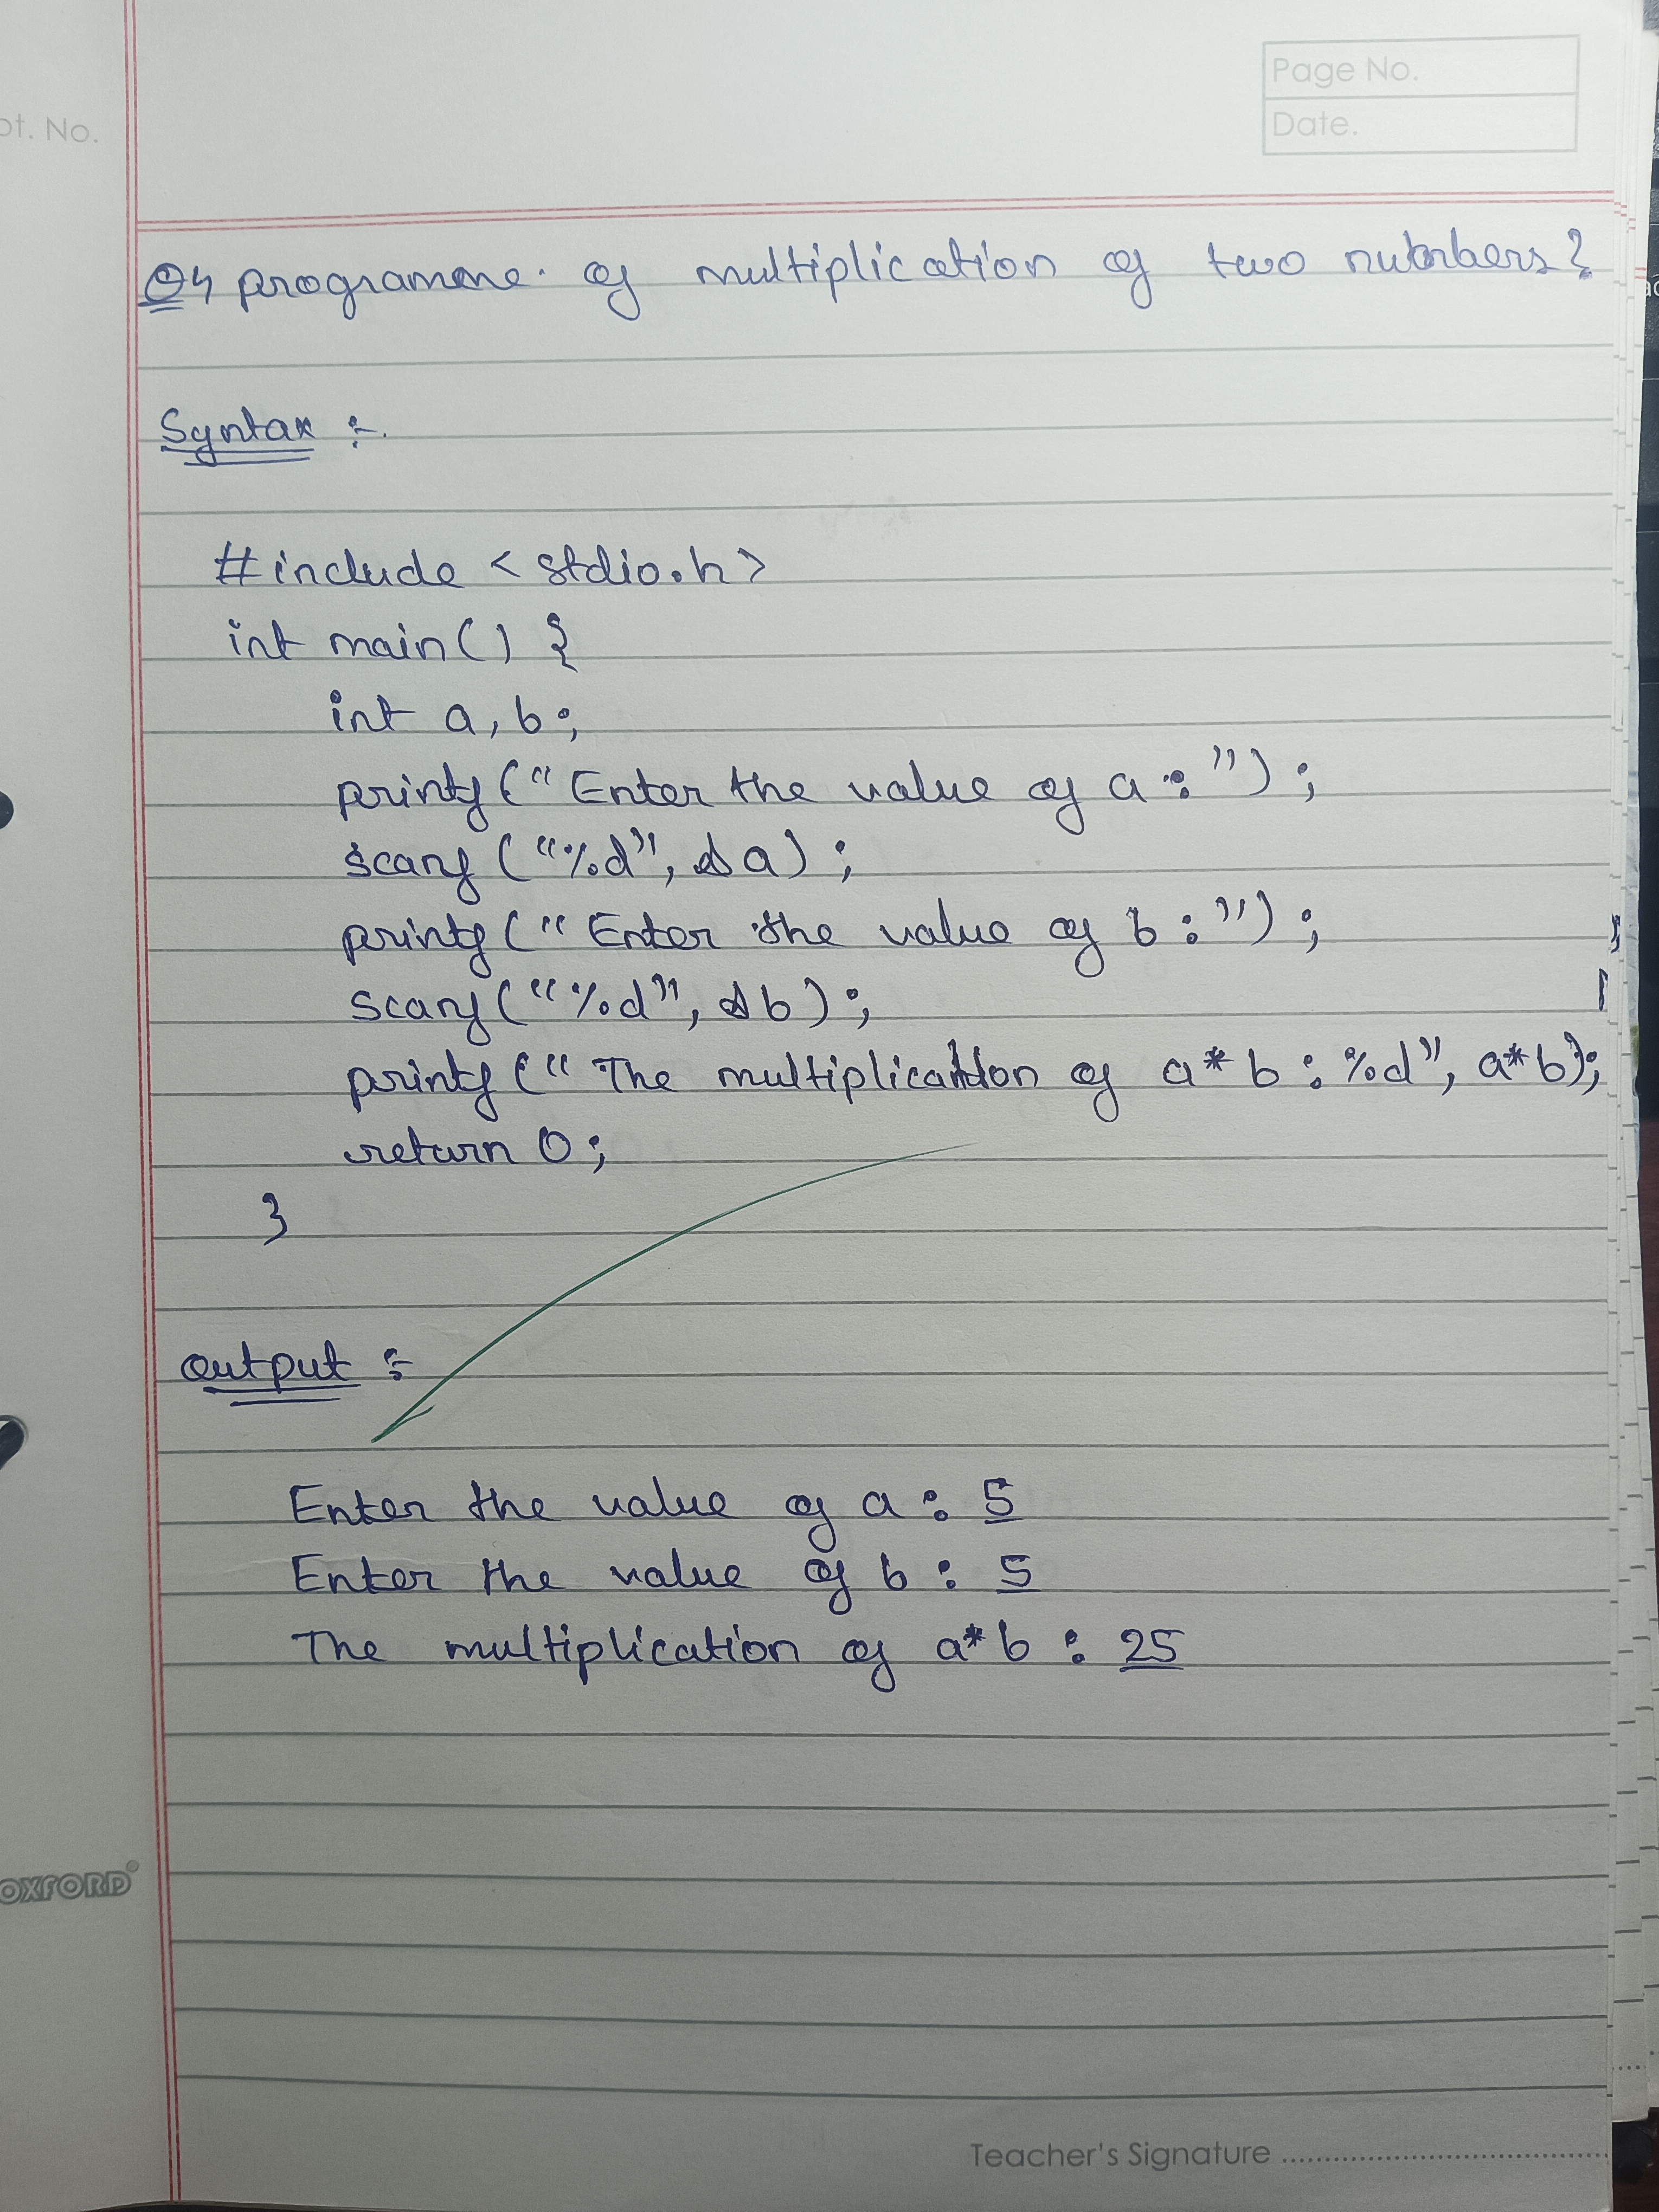 Page No.
Date.
pt. No.
Q4 programme. of multiplication of two numbers?
Syntax :-
#include < stdio.h >
int main() {
int a, b;
printf(" Enter the value of a : ");
scanf ("%d", &a);
printf(" Enter the value of b : ");
scanf("%d", &b);
printf(" The multiplication of a*b : %d", a*b);
return 0;
}
output :-
Enter the value of a : 5
Enter the value of b : 5
The multiplication of a*b : 25
OXFORD
Teacher's Signature